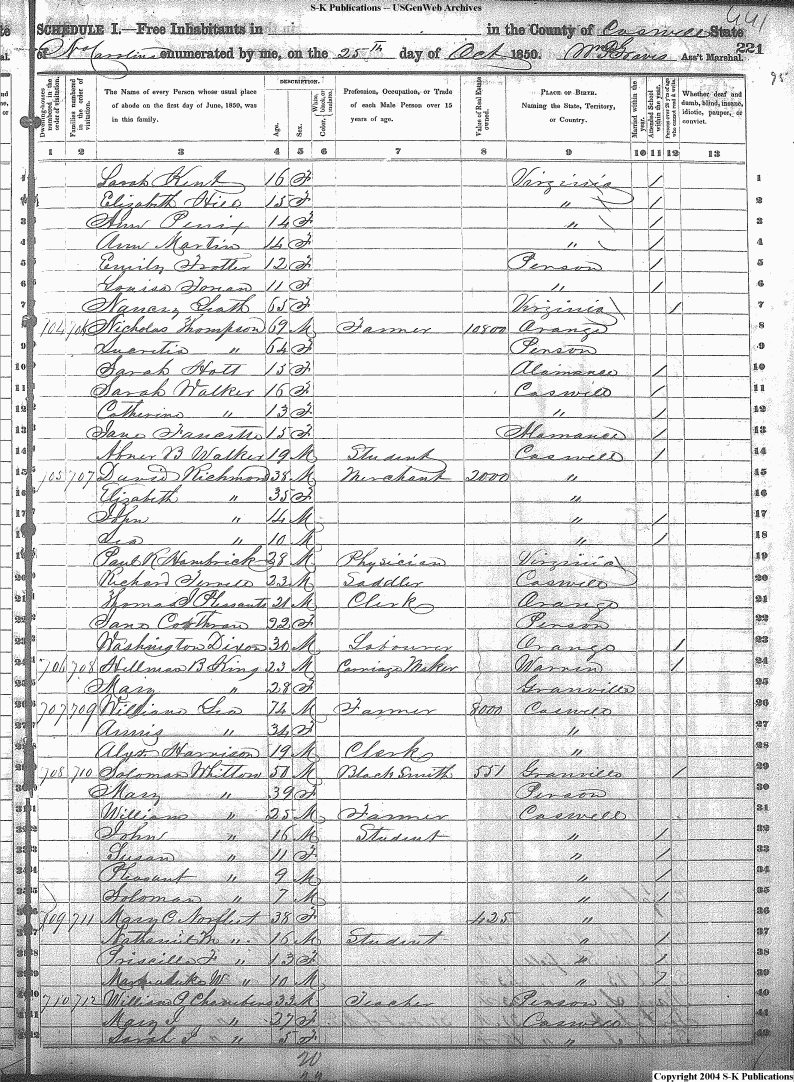 S-K Publications -- USGenWeb Archives
441
SCHEDULE I.—Free Inhabitants in in the County of Caswell State
of No Carolina enumerated by me, on the 25th day of Oct 1850. Ass't Marshal. 221
95
Dwelling-houses numbered in the order of visitation.
Families numbered in the order of visitation.
The Name of every Person whose usual place of abode on the first day of June, 1850, was in this family.
DESCRIPTION.
Age.
Sex.
Color, White, black, or mulatto.
Profession, Occupation, or Trade of each Male Person over 15 years of age.
Value of Real Estate owned.
PLACE OF BIRTH. Naming the State, Territory, or Country.
Married within the year.
Attended School within the year.
Persons over 20 y'rs of age who cannot read & write.
Whether deaf and dumb, blind, insane, idiotic, pauper, or convict.
1 2 3 4 5 6 7 8 9 10 11 12 13
1 Sarah Kent 16 F Virginia / 1
2 Elizabeth 15 F " / 2
3 Ann Penix 14 F " / 3
4 Ann Martin 14 F " / 4
5 Emily Trotter 12 F Person / 5
6 Louisa 11 F " / 6
7 Nancy 65 F Virginia / 7
8 104 706 Nicholas Thompson 69 M Farmer 10800 Orange 8
9 Lucretia " 64 F Person 9
10 Sarah Holt 15 F Alamance / 10
11 Sarah Walker 16 F Caswell / 11
12 Catherine " 13 F " / 12
13 Jane 15 F Alamance / 13
14 Abner B Walker 19 M Student Caswell / 14
15 105 707 David Richmond 38 M Merchant 2000 " 15
16 Elizabeth " 35 F " 16
17 John " 14 M " / 17
18 " 10 M " / 18
19 Paul R Hambrick 28 M Physician Virginia 19
20 Richard 23 M Saddler Caswell 20
21 Thomas J Pleasants 21 M Clerk Orange 21
22 Jane Cothran 22 F Person 22
23 Washington Dixon 30 M Labourer Orange / 23
24 706 708 Hillman B King 23 M Carriage Maker Warren / 24
25 Mary " 28 F Granville 25
26 707 709 William Lea 74 M Farmer 8000 Caswell 26
27 Annis " 34 F " 27
28 Harrison 19 M Clerk " 28
29 708 710 Soloman Whitlow 50 M Black Smith 551 Granville / 29
30 Mary " 39 F Person 30
31 William " 25 M Farmer Caswell 31
32 John " 16 M Student " / 32
33 Susan " 11 F " / 33
34 Pleasant " 9 M " / 34
35 Soloman " 7 M " / 35
36 609 711 Mary C Norfleet 38 F 425 " 36
37 Nathaniel M " 16 M Student " / 37
38 Priscilla F " 13 F " / 38
39 Marmaduke W " 10 M " / 39
40 710 712 William G Chambers 33 M Teacher Person 40
41 Mary J " 27 F Caswell 41
42 Sarah J " 5 F " 42
20
Copyright 2004 S-K Publications